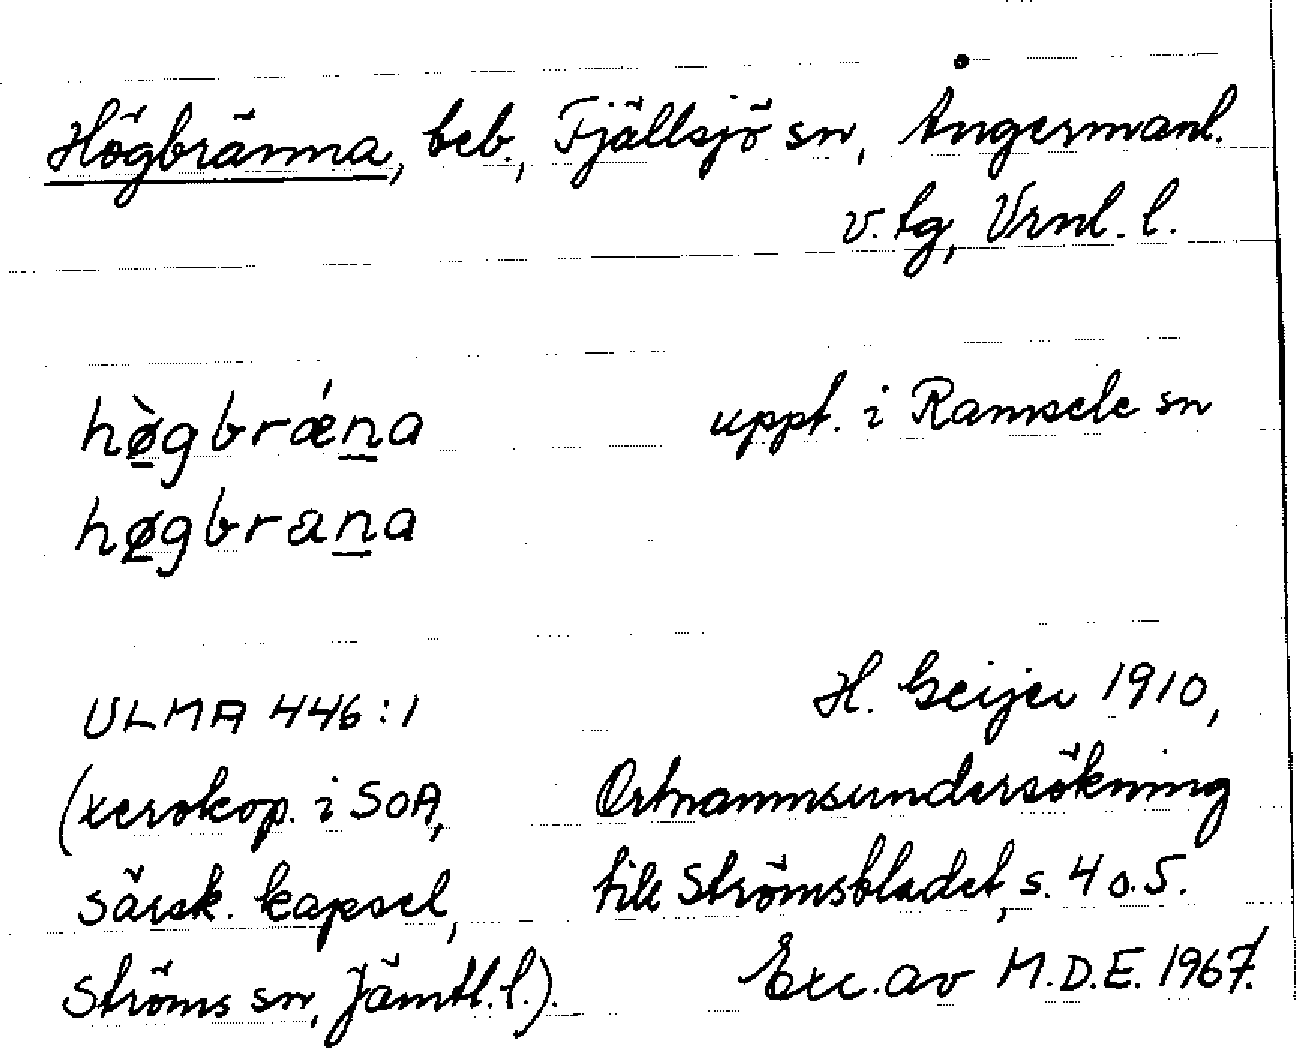 Högbränna, beb., Fjällsjö sn, Ångermanl.
v. tg, Vrnl. l.
hø̀gbrǽn̲a uppt. i Ramsele sn
høgbran̲a
ULMA 446:1 H. Geijer 1910,
(xerokop. i SOA, Ortnamnsundersökning
särsk. kapsel, till Strömsbladet, s. 4 o. 5.
Ströms sn, Jämtl. l.). Exc. av M.D.E. 1967.